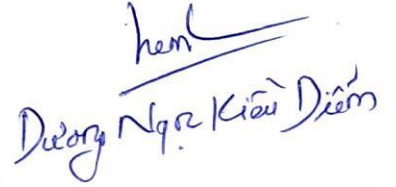 Dương Ngọc Kiều Diễm